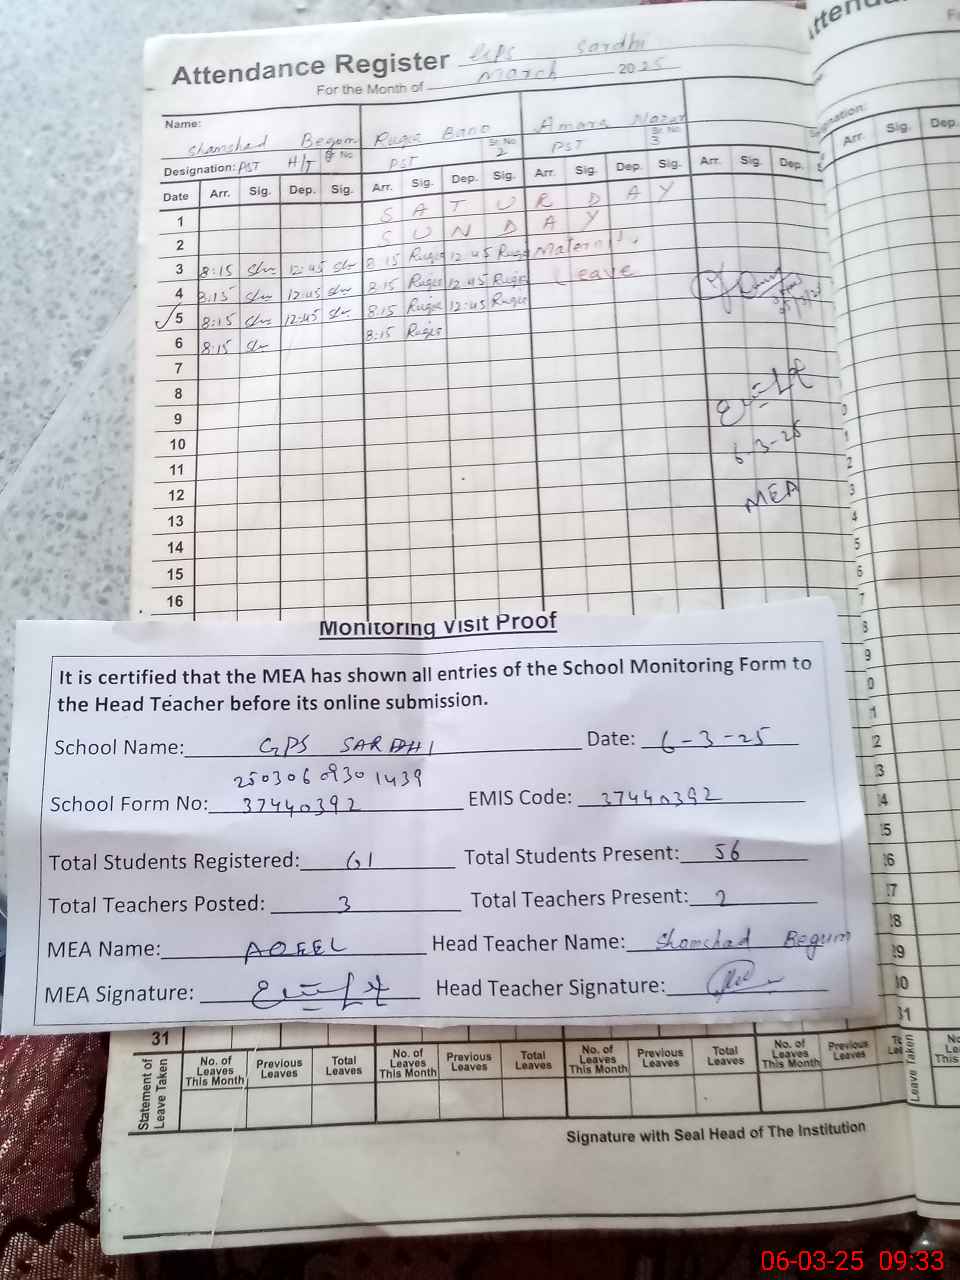 Attendance Register GPS Sardhi
For the Month of March 2025
Name: Shamshad Begum Ruqia Bano Amara Nazar
Designation: PST H/T Sr. No PST Sr. No. 2 PST Sr. No. 3
Date Arr. Sig. Dep. Sig. Arr. Sig. Dep. Sig. Arr. Sig. Dep. Sig. Arr. Sig. Dep.
1 S A T U R D A Y
2 S U N D A Y
3 8:15 12:45 8:15 Ruqia 12:45 Ruqia Maternity
4 8:15 12:45 8:15 Ruqia 12:45 Ruqia Leave
5 8:15 12:45 8:15 Ruqia 12:45 Ruqia
6 8:15 8:15 Ruqia
7
8
9
10 6-3-25
11
12 MEA
13
14
15
16
Monitoring Visit Proof
It is certified that the MEA has shown all entries of the School Monitoring Form to
the Head Teacher before its online submission.
School Name: GPS SARDHI Date: 6-3-25
250306 0930 1439
School Form No: 37440392 EMIS Code: 37440392
Total Students Registered: 61 Total Students Present: 56
Total Teachers Posted: 3 Total Teachers Present: 2
MEA Name: AQEEL Head Teacher Name: Shamshad Begum
MEA Signature: Head Teacher Signature:
31
Statement of Leave Taken
No. of Leaves This Month Previous Leaves Total Leaves No. of Leaves This Month Previous Leaves Total Leaves No. of Leaves This Month Previous Leaves Total Leaves No. of Leaves This Month Previous Leaves
Signature with Seal Head of The Institution
Arr. Sig. Dep.
Leave Taken
06-03-25 09:33